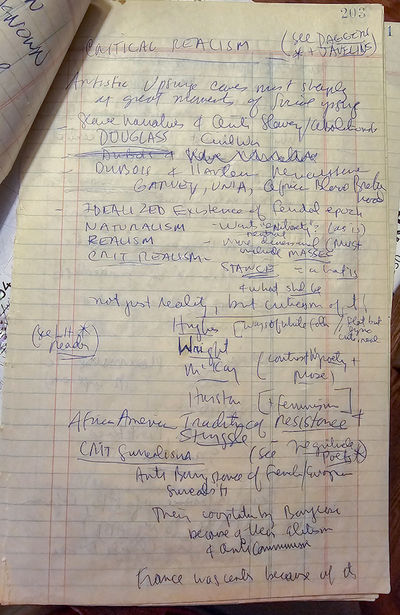 203
CRITICAL REALISM (see DAGGERS
+ JAVELINS
Artistic Upsurge comes most sharply
at great moments of social upsurge
- Slave Narratives & Anti Slavery/Abolitionists
DOUGLASS + Civil War
- DuBois & Harlem Renaissance
GARVEY, UNIA, Africa Blood Brother
hood
- IDEALIZED Existence of feudal epoch
NATURALISM - (as is)
neutral
REALISM - more dimensional (must
include MASSES
CRIT REALISM -
STANCE = what is
& what shd be
not just reality, but criticism of it!
Hughes [Ways of white folks
(see Lit
reader) Wright
McKay (contrast W/poetry +
prose)
Hurston [+ feminism
Africa American Tradition of resistance +
Struggle
CRIT Surrealism (see Negritude
Poets)
Anti Bourg stance of French/European
Surrealists
Their cooptation by Bourgeoisie
because of their elitism
& anti Communism
France was center because of its